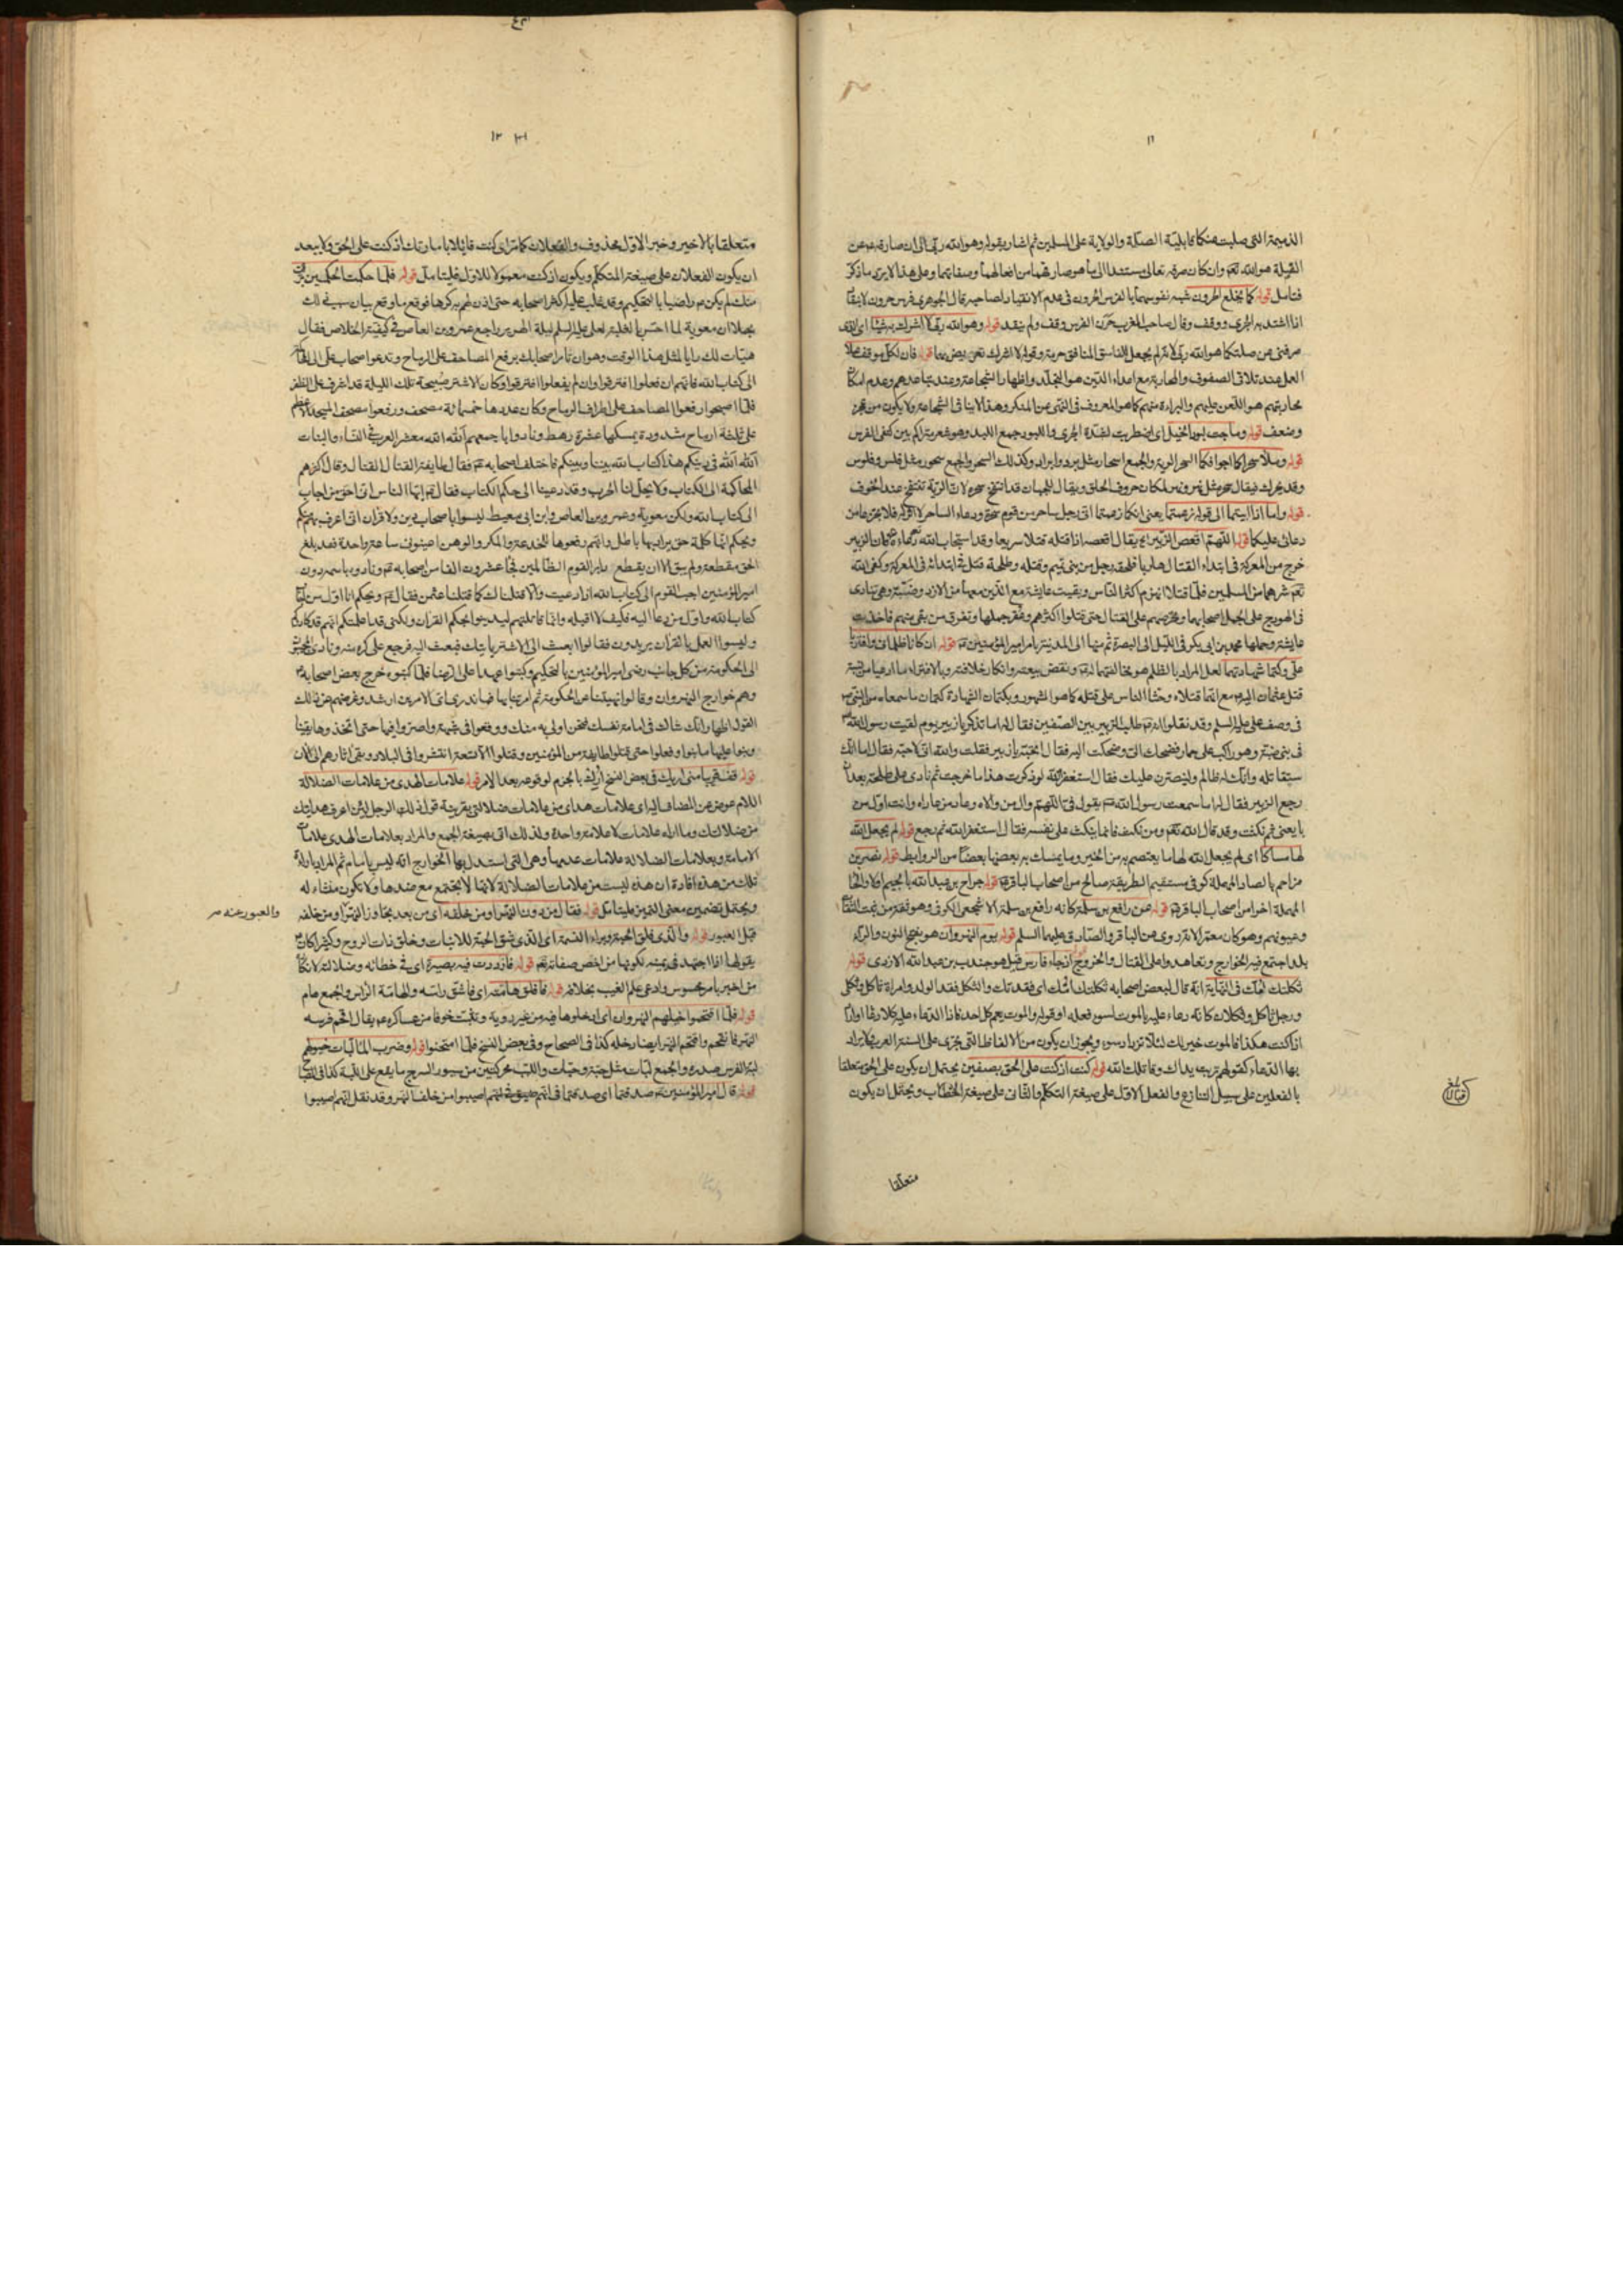 ١١
الذميمة التي صليت هنكا قابلية الصلة والولاية على المسلمين ثم اشار بقوله وهو الله ربي الى ان صارفه عن
القبلة هو الله تعالى وان كان صرفه تعالى مستندا الى ما هو صارفهما من افعالهما وصفاتهما وعلى هذا لا يرد ما ذكر
فتامل قوله كما يخلع الحرون شبه نفوسهما بالفرس الحرون في عدم الانقياد لصاحبه قال الجوهري فرس حرون لا ينقاد
اذا اشتد به الجري ووقف وقال صاحب المغرب حرن الفرس وقف ولم ينقد قوله وهو الله ربي لا اشرك به شيئا اي الذي
صرفني عن صلتكما هو الله ربي لانه لم يجعل للفاسق المنافق حرمة وقوله لا اشرك قوله فان لكل موقف عملا
العمل عند تلاقي الصفوف والمحاربة مع اعداء الدين هو التجلد واظهار الشجاعة وعند تباعدهم وعدم امكان
محاربتهم هو اللعن عليهم والبراءة منهم كما هو المعروف في النهي عن المنكر وهذا لا ينافي الشجاعة ولا يكون من عجز
وضعف قوله وماجت لبود الخيل اي اضطربت لشدة الجري واللبود جمع اللبد وهو شعر متراكم بين كتفي الفرس
قوله وملأ سحراكما اجوافكما السحر الرية والجمع اسحار مثل برد وابراد وكذلك السحر والجمع سحور مثل فلس وفلوس
وقد يحرك فيقال سحر مثل نهر ونهر لمكان حروف الحلق ويقال للجبان قد انتفخ سحره لان الرية تنتفخ عند الخوف
قوله واما اذا ابيتما الى قوله زعمتما يعني انكما زعمتما اني رجل ساحر من قوم سحرة ودعاء الساحر لا اثر له فلا تجزعا من
دعائي عليكما قوله اللهم اقعص الزبير يقال اقعصه اذا قتله قتلا سريعا وقد استجاب الله دعاءه كان الزبير
خرج من المعركة في ابتداء القتال هاربا فلحقه رجل من بني تميم وقتله وطلحة قتل في ابتدائه في المعركة وكفى الله
تعالى شرهما من المسلمين فلما قتلا انهزم اكثر الناس وبقيت عايشة مع الذين معها من الازد وضبة وهي تنادي
في الهودج على الجمل اصحابها وتحرضهم على القتال حتى قتلوا اكثرهم وعقر جملها وتفرق من بقي منهم فاخذت
عايشة وحملها محمد بن ابي بكر في الليل الى البصرة ثم منها الى المدينة بامر امير المؤمنين قوله ان كانا ظلماني وافتريا
علي وكتما شهادتهما لعل المراد بالظلم هو مخالفتهما له ونقض بيعته وانكار خلافته وبالافتراء ما ادعيا من نسبة
قتل عثمان اليه مع انهما قتلاه وحثا الناس على قتله كما هو المشهور وبكتمان الشهادة كتمان ما سمعاه من النبي
في وصف علي عليه السلم وقد نقلوا انه طلب الزبير بين الصفين فقال له اما تذكر يا زبير يوم لقيت رسول الله
في بني ضبة وهو راكب على حمار فضحك الي وضحكت اليه فقال اتحبه يا زبير فقلت والله اني لاحبه فقال اما انك
ستقاتله وانك له ظالم ولينصرن عليك فقال استغفر الله لو ذكرت هذا ما خرجت ثم نادى علي طلحة بعد ان
رجع الزبير فقال له اما سمعت رسول الله يقول في اللهم وال من والاه وعاد من عاداه وانت اول من
بايعني ثم نكثت وقد قال الله تعالى ومن نكث فانما ينكث على نفسه فقال استغفر الله ثم رجع قوله لم يجعل الله
لهما مساكا اي لم يجعل الله لهما ما يعتصم به من الخير وما يمسك به بعضها بعضا من الروابط قوله نصر بن
مزاحم بالصاد المهملة كوفي مستقيم الطريقة صالح من اصحاب الباقر قوله جراح بن عبد الله بالجيم اولا والحا
المهملة اخرا من اصحاب الباقر قوله عن رافع بن سلمة كانه رافع بن سلمة الاشجعي الكوفي وهو ثقة من بيت الثقات
وعيونهم وهو كان معمرا لانه روى عن الباقر والصادق عليهما السلم قوله يوم النهروان هو بفتح النون والراء
بلد اجتمع فيه الخوارج وتعاهدوا على القتال والخروج قيل هو جندب بن عبد الله الازدي قوله
ثكلتك امك في النهاية انه قال لبعض اصحابه ثكلتك امك اي فقدتك والثكل فقد الولد وامراة ثاكل وثكلى
ورجل ثاكل وثكلان كانه دعاء عليه بالموت لسوء فعله او قوله والموت يعم كل احد فاذا الدعاء عليه كلا دعاء او اراد
اذا كنت هكذا فالموت خير لك لئلا تزداد سوء ويجوز ان يكون من الالفاظ التي تجري على السنة العرب ولا يراد
بها الدعاء كقولهم تربت يداك وقاتلك الله قوله كنت اذ كنت على الحق بصفين يحتمل ان يكون على الحق متعلقا
بالفعلين على سبيل التنازع والفعل الاول على صيغة التكلم والثاني على صيغة الخطاب ويحتمل ان يكون
متعلقا
١٢
متعلقا بالاخير وخبر الاول محذوف والفعلان كما مر اي كنت قائلا بامامتك اذ كنت على الحق ولا يبعد
ان يكون الفعلان على صيغة المتكلم ويكون اذ كنت معمولا للاول فليتامل قوله فلما حكمت الحكمين
منك لم يكن راضيا بالتحكيم وقد غلب عليه اكثر اصحابه حتى اذن لهم به كرها فوقع ما وقع بيان سبب ذلك
مجملا ان معوية لما احس بالغلبة لعلي عليه السلم ليلة الهرير راجع عمرو بن العاص في كيفية الخلاص فقال
هيات لك رايا لمثل هذا الوقت وهو ان تامر اصحابك برفع المصاحف على الرماح وتدعوا اصحاب علي الى
الى كتاب الله فانهم ان فعلوا افترقوا وان لم يفعلوا افترقوا وكان الاشتر صبيحة تلك الليلة قد اشرف على الظفر
فلما اصبحوا رفعوا المصاحف على اطراف الرماح وكان عددها خمسمائة مصحف ورفعوا مصحف المسجد الاعظم
على ثلثة ارماح مشدودة يمسكها عشرة رهط ونادوا باجمعهم الله الله معشر العرب في النساء والبنات
الله الله في دينكم هذا كتاب الله بيننا وبينكم فاختلف اصحابه فقال طايفة القتال القتال وقال اكثرهم
المحاكمة الى الكتاب ولا يحل لنا الحرب وقد دعينا الى حكم الكتاب فقال ايها الناس اني احق من اجاب
الى كتاب الله ولكن معوية وعمرو بن العاص وابن ابي معيط ليسوا باصحاب دين ولا قران اني اعرف بهم منكم
ويحكم انها كلمة حق يراد بها باطل وانهم رفعوها للخدعة والمكر والوهن اعينوني ساعة واحدة فقد بلغ
الحق مقطعه ولم يبق الا ان يقطع دابر القوم الظالمين فجاء عشرون الفا من اصحابه ونادوه باسمه دون
امير المؤمنين اجب القوم الى كتاب الله اذ دعيت والا قتلناك كما قتلنا عثمن فقال ويحكم انا اول من اجاب
كتاب الله واول من دعا اليه فكيف لا اقبله وانما قاتلتهم ليدينوا بحكم القران ولكني قد اعلمتكم انهم قد كادوكم
وليسوا العمل بالقران يريدون فقالوا ابعث الى الاشتر ياتيك فبعث اليه فرجع على كره منه
الى الحكومة من كل جانب رضي امير المؤمنين بالتحكيم وكتبوا عهدا على الرضا فلما كتبوه خرج بعض اصحابه
وهم خوارج النهروان وقالوا نهيتنا عن الحكومة ثم امرتنا بها فما ندري اي الامرين ارشد وغرضهم من ذلك
القول اظهار انك شاك في امامة نفسك فنحن اولى به منك ووقعوا في شبهة واصروا فيها حتى اتخذوها دينا
وبنوا عليها ما بنوا وفعلوا حتى قتلوا طايفة من المؤمنين وقتلوا الا تسعة انتشروا في البلاد وبقي اثارهم الى الان
قوله فقف قريبا مني اريك في بعض النسخ اريك بالجزم لوقوعه بعد الامر قوله علامات الهدى من علامات الضلالة
اللام عوض عن المضاف اليه اي علامات هداي من علامات ضلالتي بقرينة قوله ذلك الرجل لئن اعرف هدايتك
من ضلالتك وما اراه علامات لا علامة واحدة ولذلك اتى بصيغة الجمع والمراد بعلامات الهدى علامات
الامامة وبعلامات الضلالة علامات عدمها وهي التي استدل بها الخوارج انه ليس بامام ثم المراد باراءة
تلك من هذه افادة ان هذه ليست من علامات الضلالة لانها لا تجتمع مع ضدها ولا تكون منشاء له
ويحتمل تضمين معنى التمييز فليتامل قوله فقال من دون النهر او من خلفه اي من بعد تجاوز النهر او من خلفه
والعبور عنه صح
قبل العبور قوله والذي فلق الحبة وبراء النسمة اي الذي شق الحبة للانبات وخلق ذات الروح وكثيرا كان
يقولها اذا اجتهد في يمينه لكونها من اخص صفاته تعالى قوله فازددت فيه بصيرة اي في خطائه وضلالته لانكار
من اخبر بامر محسوس وادعى علم الغيب بخلافه قوله فافلق هامته اي فاشق راسه والهامة الراس والجمع هام
قوله فلما اقتحموا خيلهم النهروان اي ادخلوها فيه من غير روية وتثبت خوفا من عساكره يقال اقحم فرسه
النهر فانقحم واقتحم النهر ايضا دخله كذا في الصحاح وفي بعض النسخ فلما امتحنوا قوله وضرب اللبات خيولهم
لبة الفرس صدره والجمع لبات مثل حبة وحبات واللبب محركتين من سيور السرج ما يقع على اللبة كذا في المصباح
قوله قال امير المؤمنين صدقتما اي صدقتما في انهم اصيبوا من خلف النهر وقد نقل انهم اصيبوا